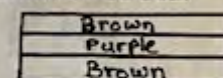 Brown
Purple
Brown